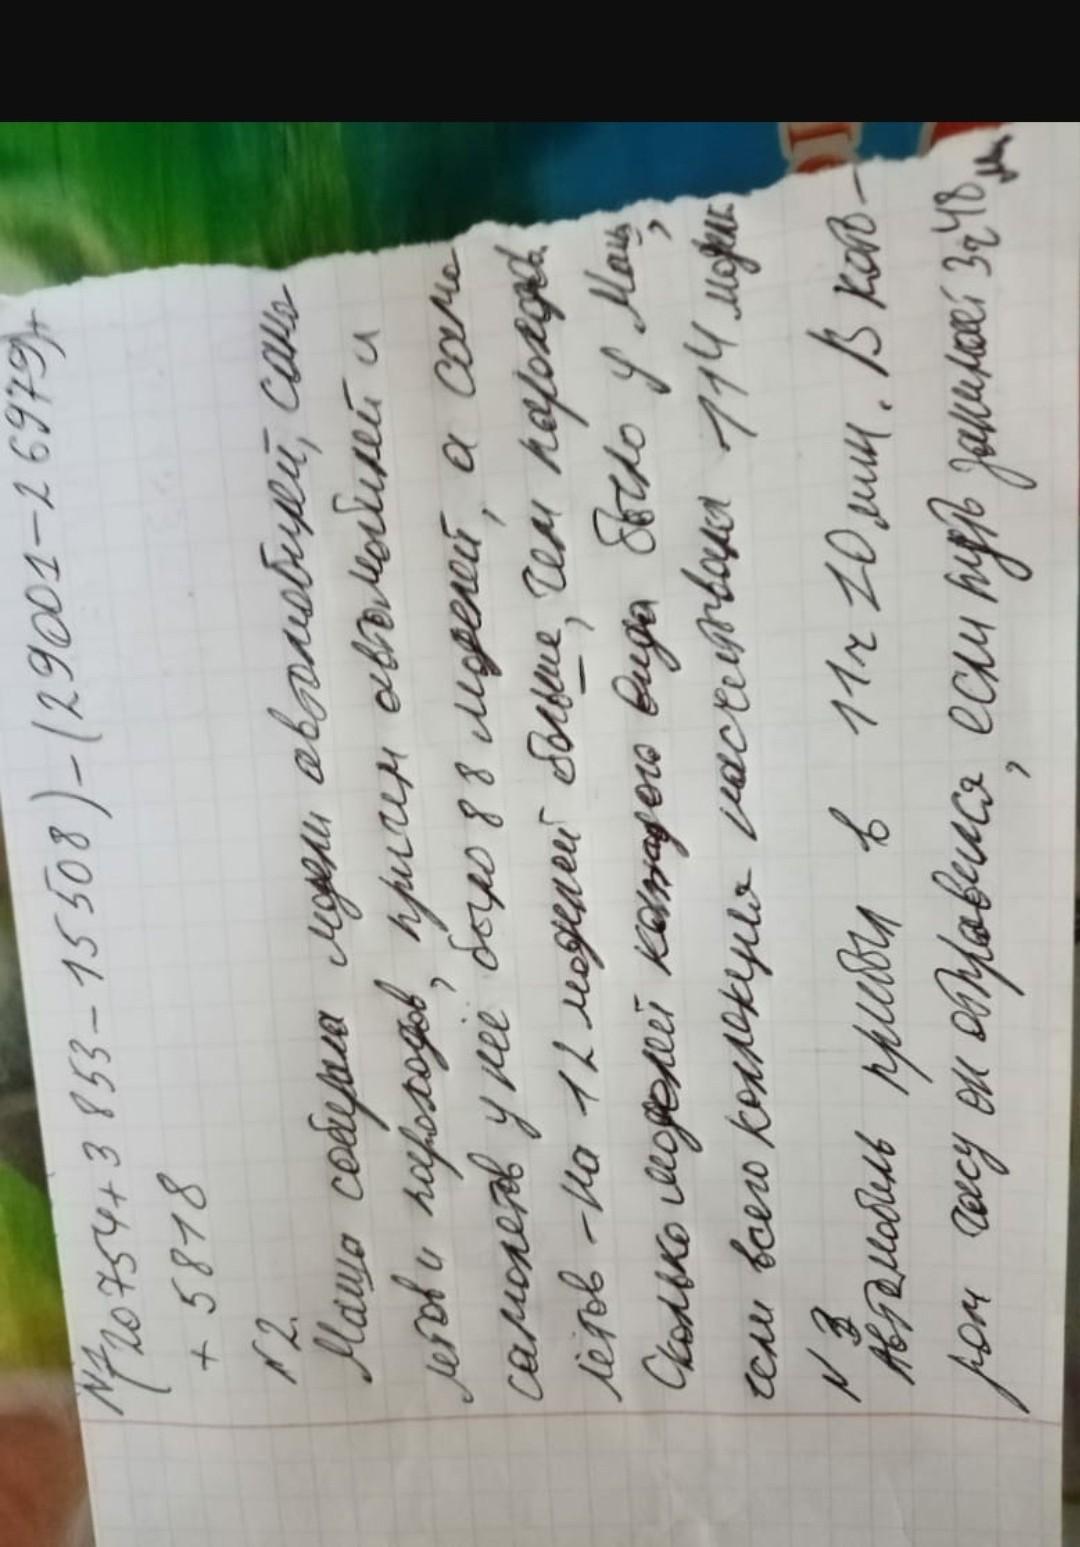 №1
(20754+3853-15508)-(29001-26979)+
+5818
№2.
Маша собирала модели автомобилей, само
летов и пароходов, причем автомобилей и
самолетов у неё было 88 моделей, а само
лётов - на 12 моделей больше, чем пароходов
Сколько моделей каждого вида было у Маши,
если всего коллекция насчитывала 114 моделей
№3
Автомобиль прибыл в 11ч 20мин. В кото-
ром часу он отправился, если путь занимает 3ч 48 мин